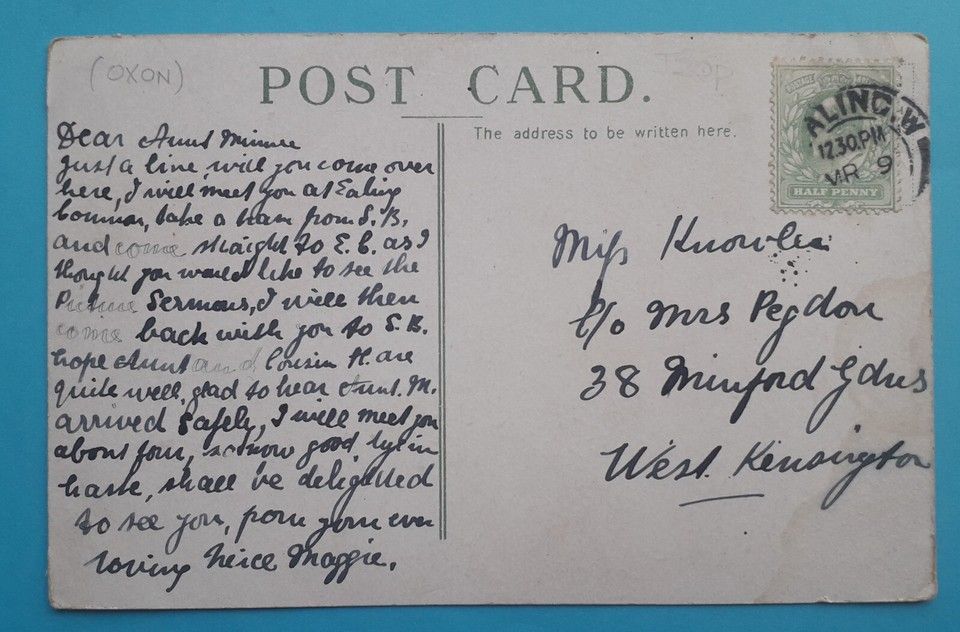 (OXON)
POST CARD.
The address to be written here.
ALING.W
12.30.PM
MR 9
HALF PENNY
Dear Aunt Minnie
Just a line will you come over
here, I will meet you at Ealing
Common, take a tram from S.B.
and come straight to E.C. as I
thought you would like to see the
Picture Sermons, I will then
come back with you to S.B.
hope Aunt and Cousin H. are
quite well, glad to hear Aunt. M.
arrived safely, I will meet you
about four, so now good bye in
haste, shall be delighted
to see you, from your ever
loving Neice Maggie.
Miss Knowles
C/o Mrs Pegdon
38 Minford Gdns
West Kensington